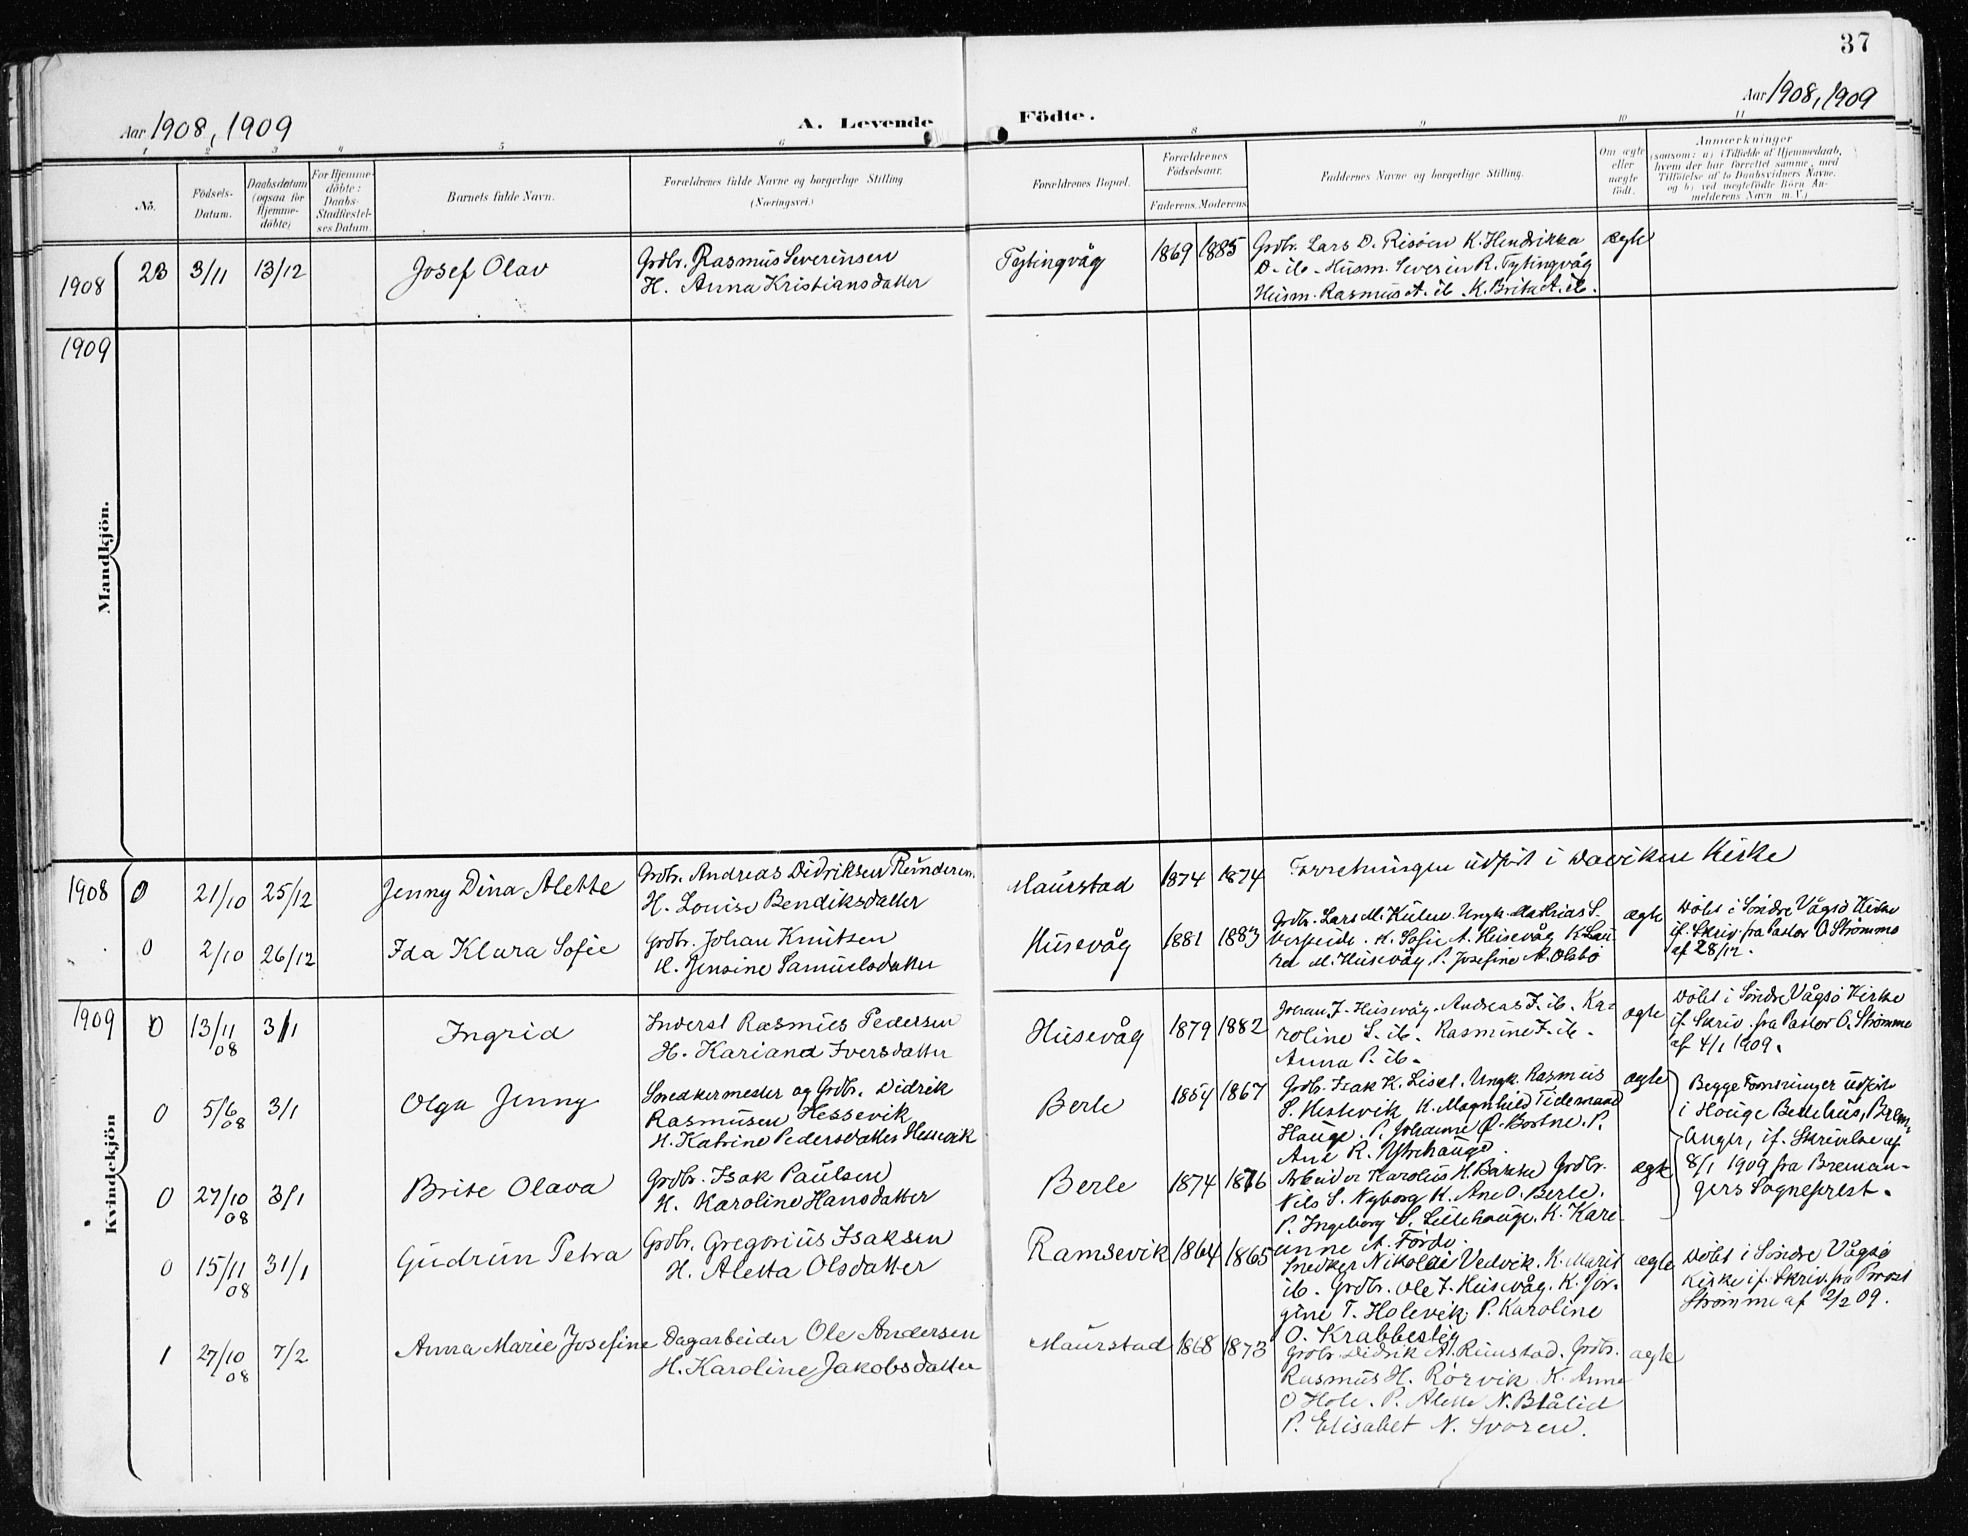 37
Aar 1908, 1909
A. Levende
Födte.
Aar 1908, 1909
1 2 3 4 5 6 8 9 10 11
No.
Födsels-
Datum.
Daabsdatum
(ogsaa for
Hjemme-
döbte)
For Hjemme-
döbte:
Daabs-
Stadfæstel-
ses Datum.
Barnets fulde Navn.
Forældrenes fulde Navne og borgerlige Stilling
(Næringsvei.)
Forældrenes Bopæl.
Forældrenes
Födselsaar.
Faderens. Moderens.
Faddernes Navne og borgerlige Stilling.
Om ægte
eller
uægte
födt.
Anmærkninger
(saasom: a) i Tilfælde af Hjemmedaab,
hvem der har forrettet samme, med
Tilföielse af to Daabsvidners Navne,
og b) ved uægtefödte Börn An-
melderens Navn m. V.)
Mandkjön.
1908 23 3/11 13/12 Josef Olav
Grdbr. Rasmus Severinsen
H. Anna Kristiansdatter
Tytingvåg 1869 1885
Grdbr. Lars D. Risöen K. Hendrikka
D. ib. Husm. Severin R. Tytingvåg
Husm. Rasmus A. ib. K. Brite A. ib.
ægte
1909
Kvindekjön
1908 0 21/10 25/12 Jenny Dina Alette
Grdbr. Andreas Didriksen
H. Louise Bendiksdatter
Maurstad 1874 1874
Forretningen udfört i Daviken Kirke
0 2/10 26/12 Ida Klara Sofie
Grdbr. Johan Knutsen
H. Jensine Samuelsdatter
Husevåg 1881 1883
Grdbr. Lars M. Ungk. Mathias S.
K. Sofie A. Husevåg K Lau-
ra M. Husevåg, P. Josefine A. Olsbö
ægte
Döbt i Söndre Vågsö Kirke
if. Skriv. fra Pastor O Strömme
af 28/12.
1909 0 13/11 08 3/1 Ingrid
Inderst Rasmus Pedersen
H. Kariane Iversdatter
Husevåg 1879 1882
Johan J. Husevåg. Andreas J. ib. Ka-
roline S. ib. Rasmine J. ib.
Anna P. ib.
ægte
Döbt i Söndre Vågsö Kirke
if. Skriv. fra Pastor O. Strömme
af 4/1 1909.
0 5/6 08 3/1 Olga Jenny
Snedkermester og Grdbr. Didrik
Rasmussen Hessevik
H. Katrine Pedersdatter Hessevik
Berle 1854 1867
Grdbr. Isak K. Liset. Ungk. Rasmus
S. Hessevik K. Magnhild Tidemand
Hauge. P. Johanne P. Bortne. P.
Ane R. Ytrehauge
ægte
Begge Forretninger udfört
i Hauge Bedehus, Brem-
anger, if. Skrivelse af
8/1 1909 fra Breman-
gers Sogneprest.
0 27/10 08 3/1 Brite Olava
Grdbr. Isak Paulsen
H. Karoline Hansdatter
Berle 1874 1876
Arbeider Karolus H. Grdbr.
Nils S. Nyborg K. Ane O. Berle.
P. Ingeborg S. Lillehauge. K. Kari-
anne A. Förde.
ægte
0 15/11 08 31/1 Gudrun Petra
Grdbr. Gregorius Isaksen
H. Aletta Olsdatter
Ramsevik 1864 1865
Snedker Nikolai Vedvik. K. Marit
ib. Grdbr. Ole J. Husevåg. K. Jör-
gine T. Holevik P. Karoline
O. Krabbestig
ægte
Döbt i Söndre Vågsö
Kirke if. Skriv. fra Prost
Strömme af 2/2 09.
1 27/10 08 7/2 Anna Marie Josefine
Dagarbeider Ole Andersen
H. Karoline Jakobsdatter
Maurstad 1868 1873
Grdbr Didrik A. Rimstad. Grdbr.
Rasmus H. Rörvik K. Anna
O Hole. P. Alette N. Blålid
P. Elisabet N. Svoren.
ægte